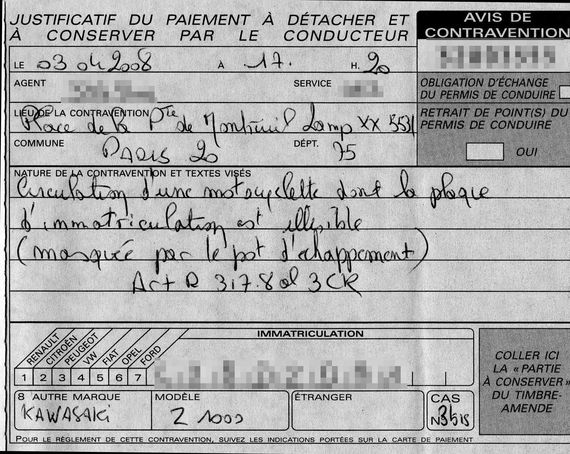 JUSTIFICATIF DU PAIEMENT À DÉTACHER ET
À CONSERVER PAR LE CONDUCTEUR
AVIS DE
CONTRAVENTION
LE 03 04 2008 À 17. H. 20
AGENT SERVICE
OBLIGATION D'ÉCHANGE
DU PERMIS DE CONDUIRE
LIEU DE LA CONTRAVENTION
Place de la Pte de Montreuil Lamp XX 553
RETRAIT DE POINT(S) DU
PERMIS DE CONDUIRE
OUI
COMMUNE PARIS 20 DÉPT. 75
NATURE DE LA CONTRAVENTION ET TEXTES VISÉS
Circulation d'une motocyclette dont la plaque
d'immatriculation est illisible
(masquée par le pot d'échappement)
Art R 317.8 al 3 CR
IMMATRICULATION
RENAULT
CITROËN
PEUGEOT
VW
FIAT
OPEL
FORD
1 2 3 4 5 6 7
8 AUTRE MARQUE
KAWASAKI
MODÈLE
Z 1000
ÉTRANGER
CAS
COLLER ICI
LA « PARTIE
À CONSERVER »
DU TIMBRE-
AMENDE
POUR LE RÈGLEMENT DE CETTE CONTRAVENTION, SUIVEZ LES INDICATIONS PORTÉES SUR LA CARTE DE PAIEMENT